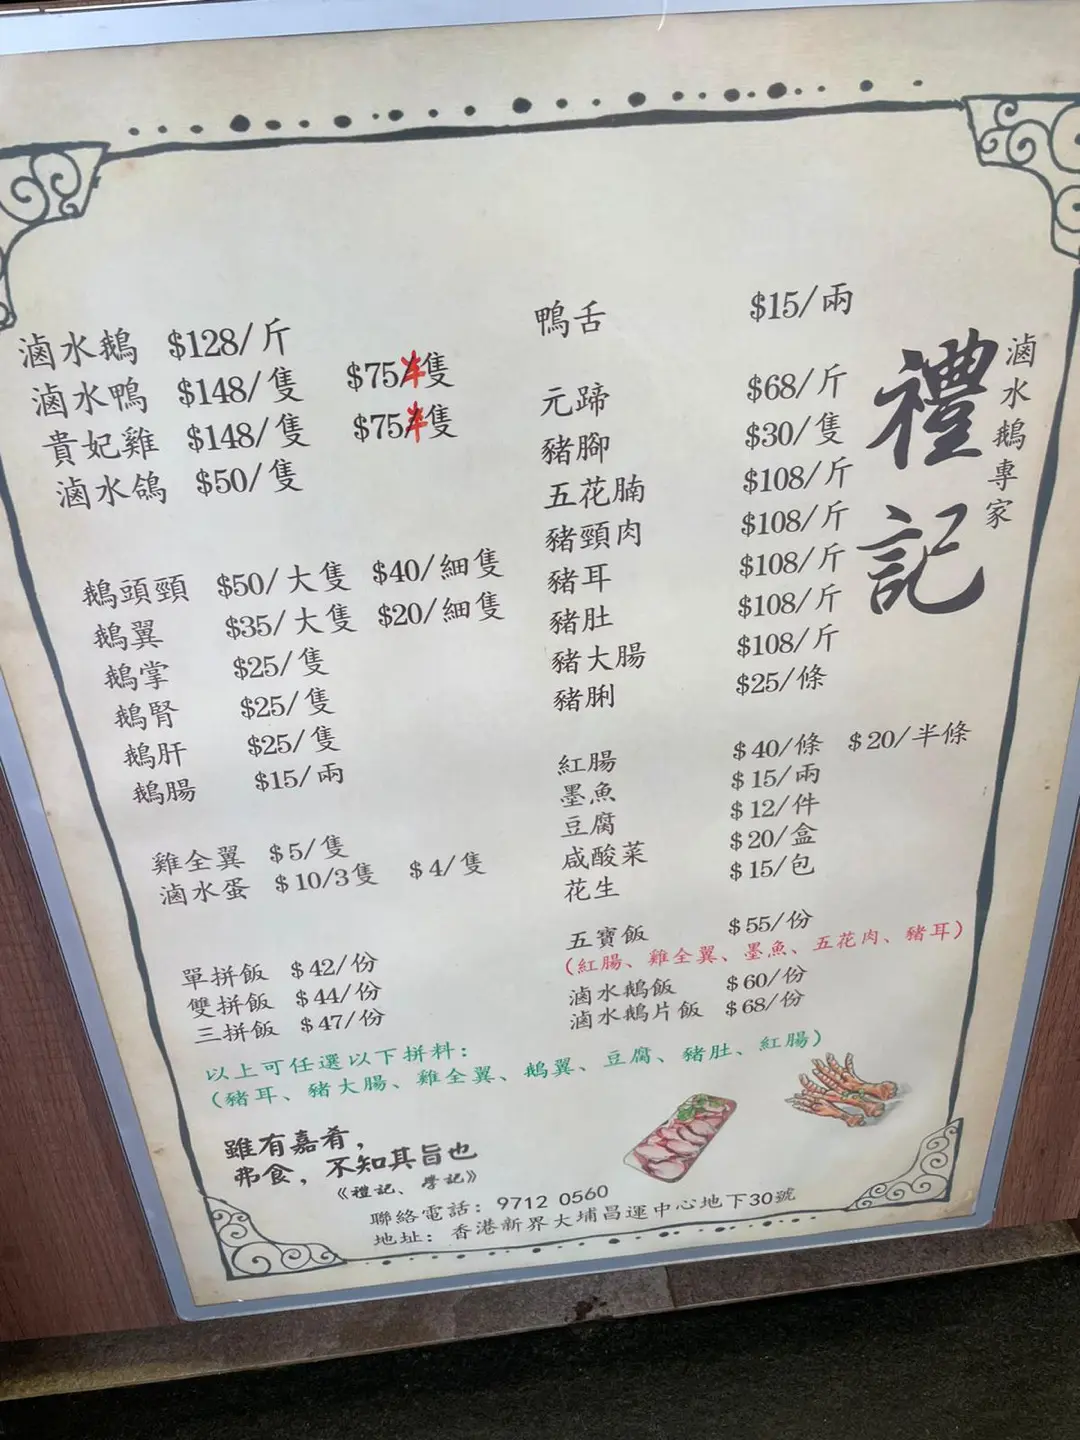 滷水鵝專家
禮記
滷水鵝 $128/斤
滷水鴨 $148/隻 $75/半隻
貴妃雞 $148/隻 $75/半隻
滷水鴿 $50/隻
鵝頭頸 $50/大隻 $40/細隻
鵝翼 $35/大隻 $20/細隻
鵝掌 $25/隻
鵝腎 $25/隻
鵝肝 $25/隻
鵝腸 $15/兩
雞全翼 $5/隻
滷水蛋 $10/3隻 $4/隻
單拼飯 $42/份
雙拼飯 $44/份
三拼飯 $47/份
以上可任選以下拼料：
（豬耳、豬大腸、雞全翼、鵝翼、豆腐、豬肚、紅腸）
鴨舌 $15/兩
元蹄 $68/斤
豬腳 $30/隻
五花腩 $108/斤
豬頸肉 $108/斤
豬耳 $108/斤
豬肚 $108/斤
豬大腸 $108/斤
豬脷 $25/條
紅腸 $40/條 $20/半條
墨魚 $15/兩
豆腐 $12/件
咸酸菜 $20/盒
花生 $15/包
五寶飯 $55/份
（紅腸、雞全翼、墨魚、五花肉、豬耳）
滷水鵝飯 $60/份
滷水鵝片飯 $68/份
雖有嘉肴，
弗食，不知其旨也
《禮記、學記》
聯絡電話：9712 0560
地址：香港新界大埔昌運中心地下30號